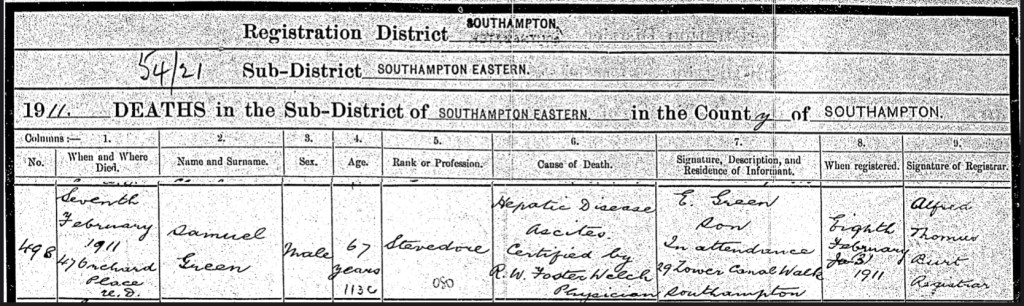 Registration District SOUTHAMPTON.
54/21 Sub-District SOUTHAMPTON EASTERN.
1911. DEATHS in the Sub-District of SOUTHAMPTON EASTERN. in the County of SOUTHAMPTON.
Columns :— 1. 2. 3. 4. 5. 6. 7. 8. 9.
No. When and Where Died. Name and Surname. Sex. Age. Rank or Profession. Cause of Death. Signature, Description, and Residence of Informant. When registered. Signature of Registrar.
498
Seventh
February
1911
47 Orchard
Place
U.D.
Samuel
Green
Male
67
years
113C
Stevedore
Hepatic Disease
Ascites.
Certified by
R. W. Foster Welch
Physician
E. Green
Son
In attendance
29 Lower Canal Walk
Southampton
Eighth
February
1911
Alfred
Thomas
Burt
Registrar